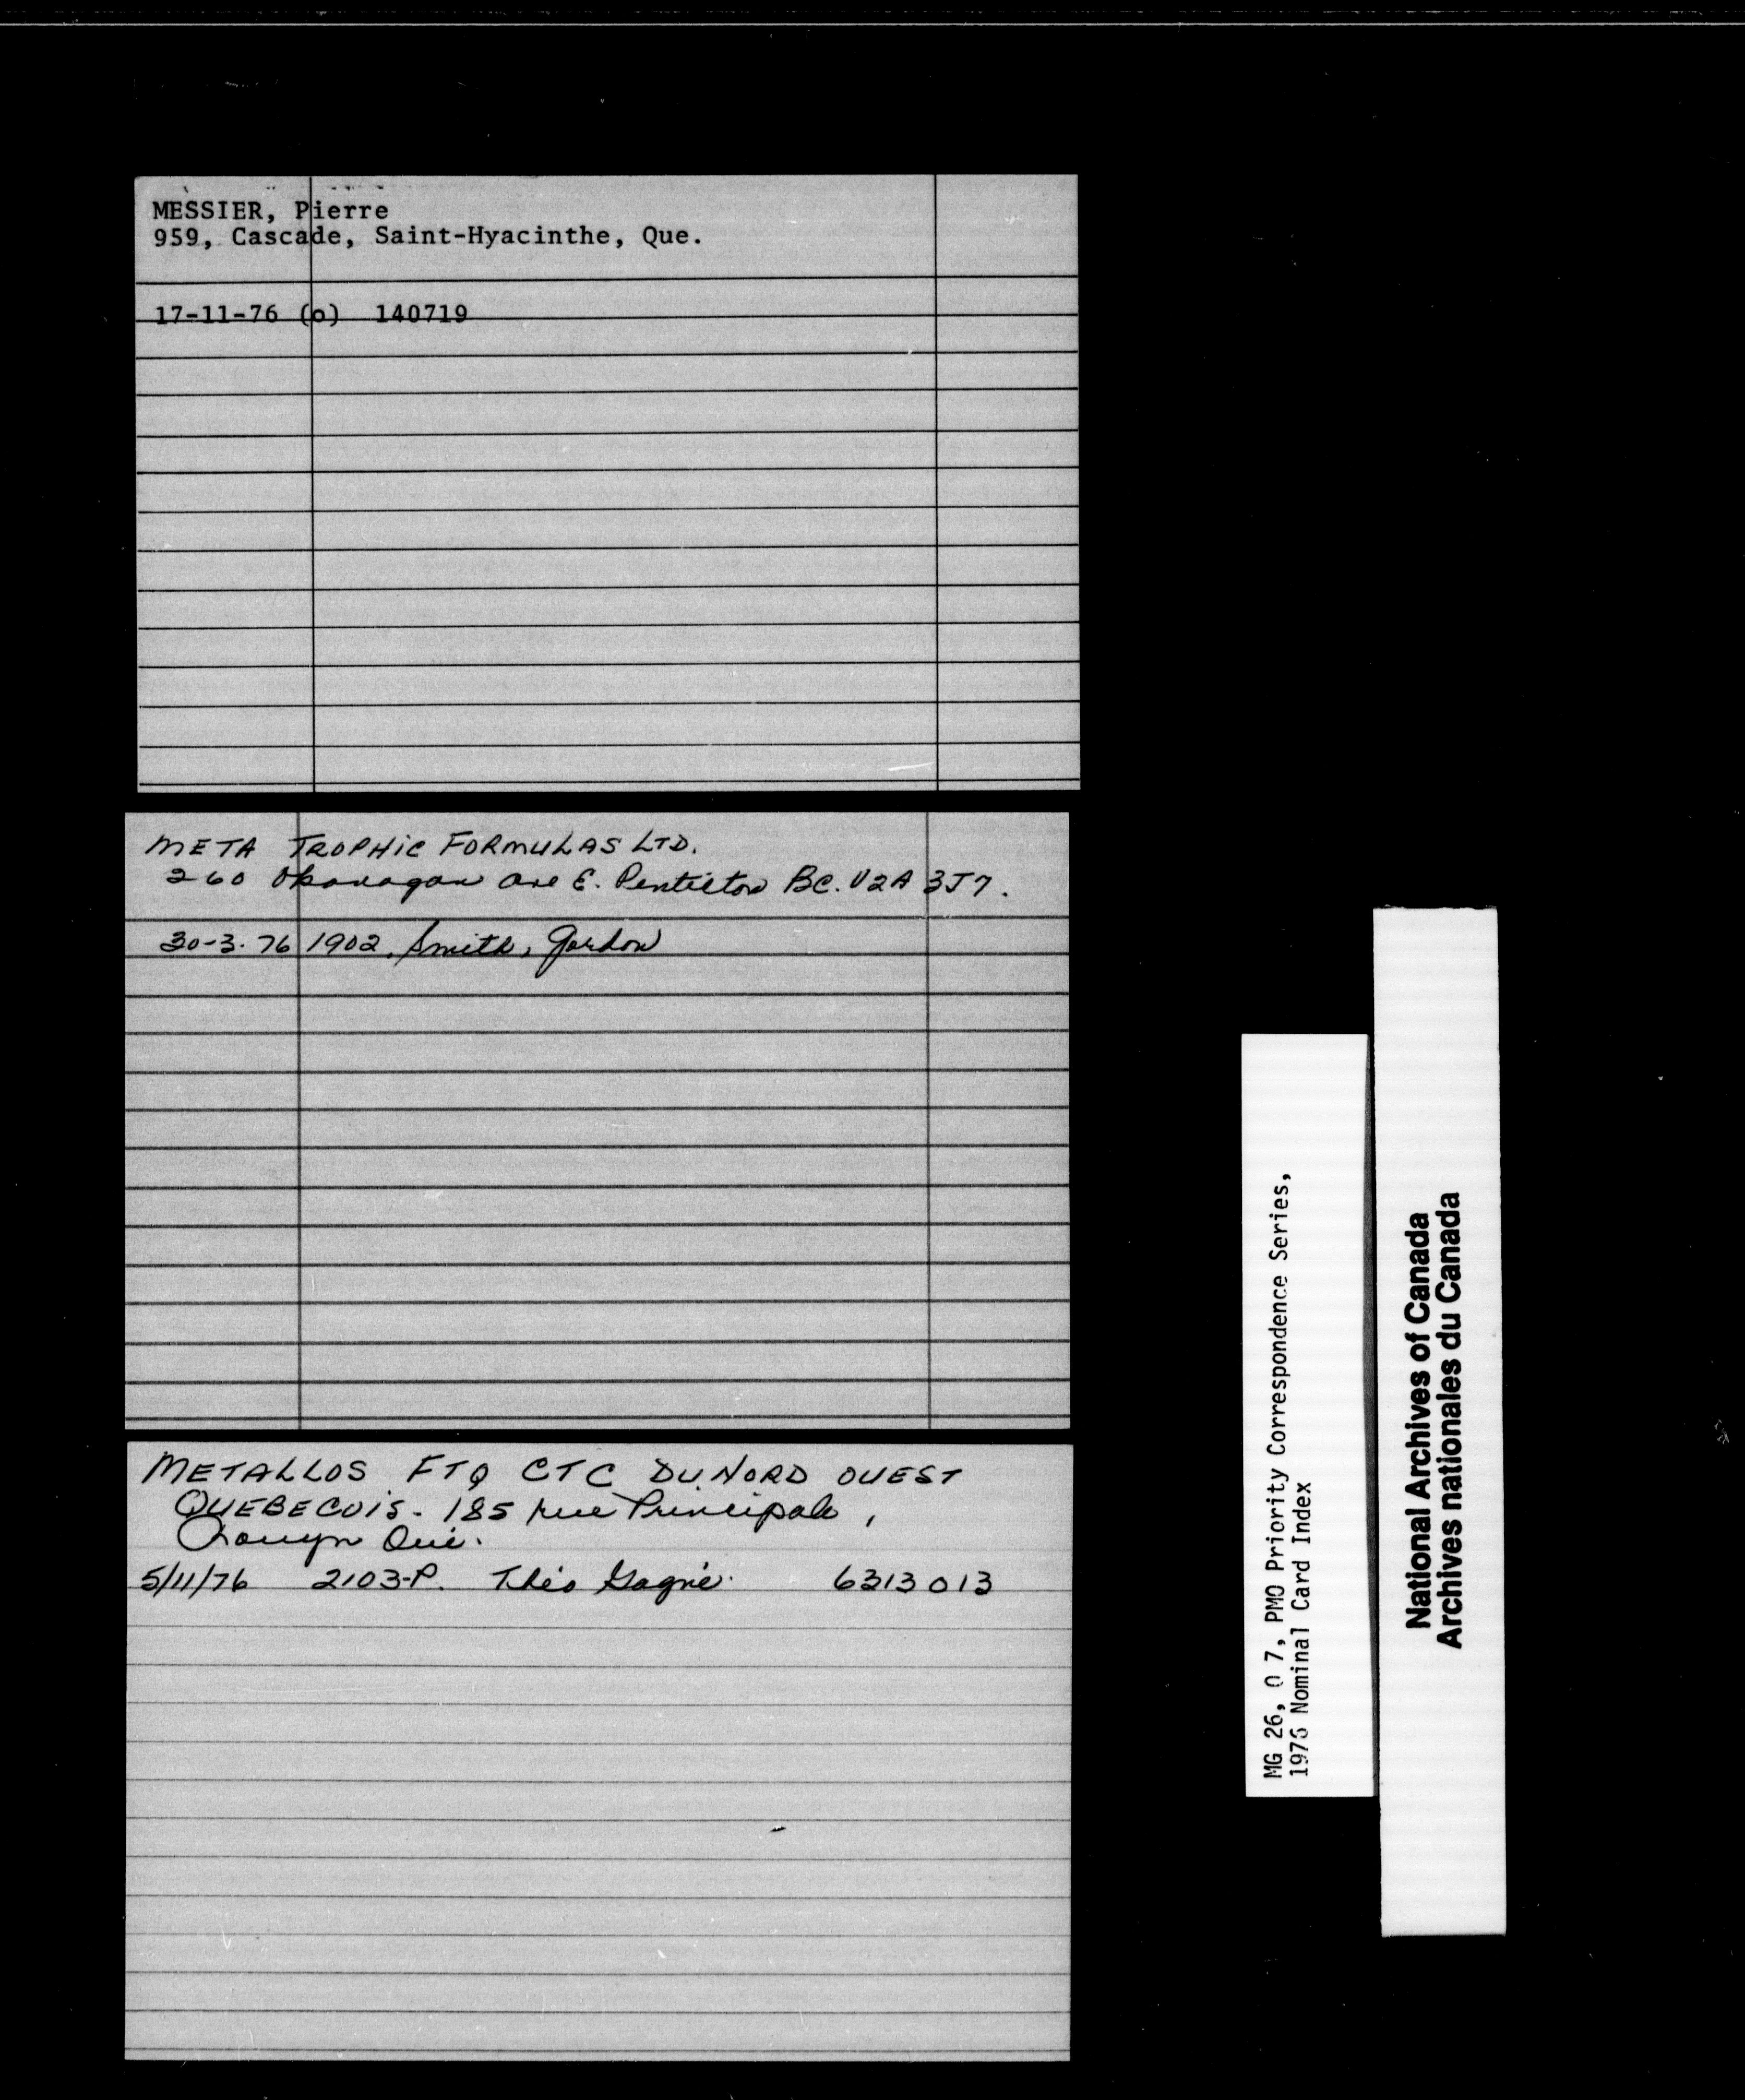 MESSIER, Pierre
959, Cascade, Saint-Hyacinthe, Que.
17-11-76 (o) 140719
META TROPHIC FORMULAS LTD.
260 Okanagan Ave E. Penticton BC. V2A 3J7.
30-3-76 1902, Smith, Gordon
METALLOS FTQ CTC DU NORD OUEST
QUEBECOIS - 185 rue Principale,
Rouyn Qué.
5/11/76 2103-P. Théo Gagné. 6313013
MG 26, O 7, PMO Priority Correspondence Series,
1976 Nominal Card Index
National Archives of Canada
Archives nationales du Canada